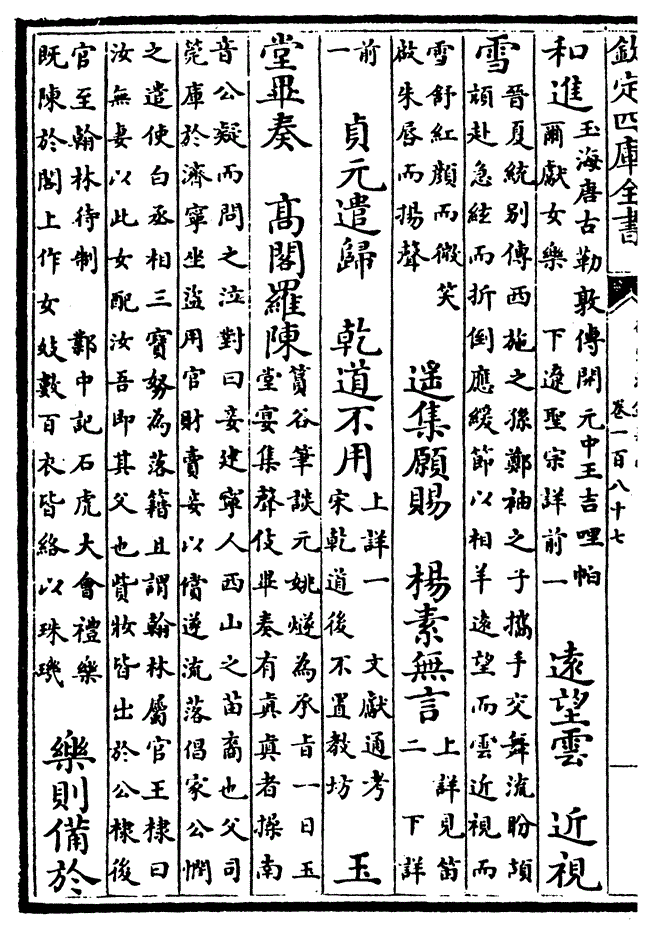 欽定四庫全書
卷一百八十七
和進
玉海唐古勒敦傳開元中王吉哩帕
爾獻女樂　下遼聖宗詳前一
遠望雲　近視
雪
晉夏統别傳西施之孫鄭袖之子擕手交舞流盼頡
頏赴急絃而折倒應緩節以相羊遠望而雲近視而
雪舒紅顔而微笑
啟朱唇而揚聲
遥集願賜　楊素無言
上詳見笛
二　下詳
前
一
貞元遣歸　乾道不用
上詳一　文獻通考
宋乾道後不置教坊
玉
堂畢奏　髙閣羅陳
筼谷筆談元姚燧為承旨一日玉
堂宴集聲伎畢奏有真真者操南
音公疑而問之泣對曰妾建寧人西山之苗裔也父司
筦庫於濟寧坐盗用官財賣妾以償逆流落倡家公憫
之遣使白丞相三寶努為落籍且謂翰林屬官王棣曰
汝無妻以此女配汝吾即其父也貲妝皆出於公棣後
官至翰林待制　鄴中記石虎大會禮樂
既陳於閣上作女妓數百衣皆絡以珠璣
樂則備於